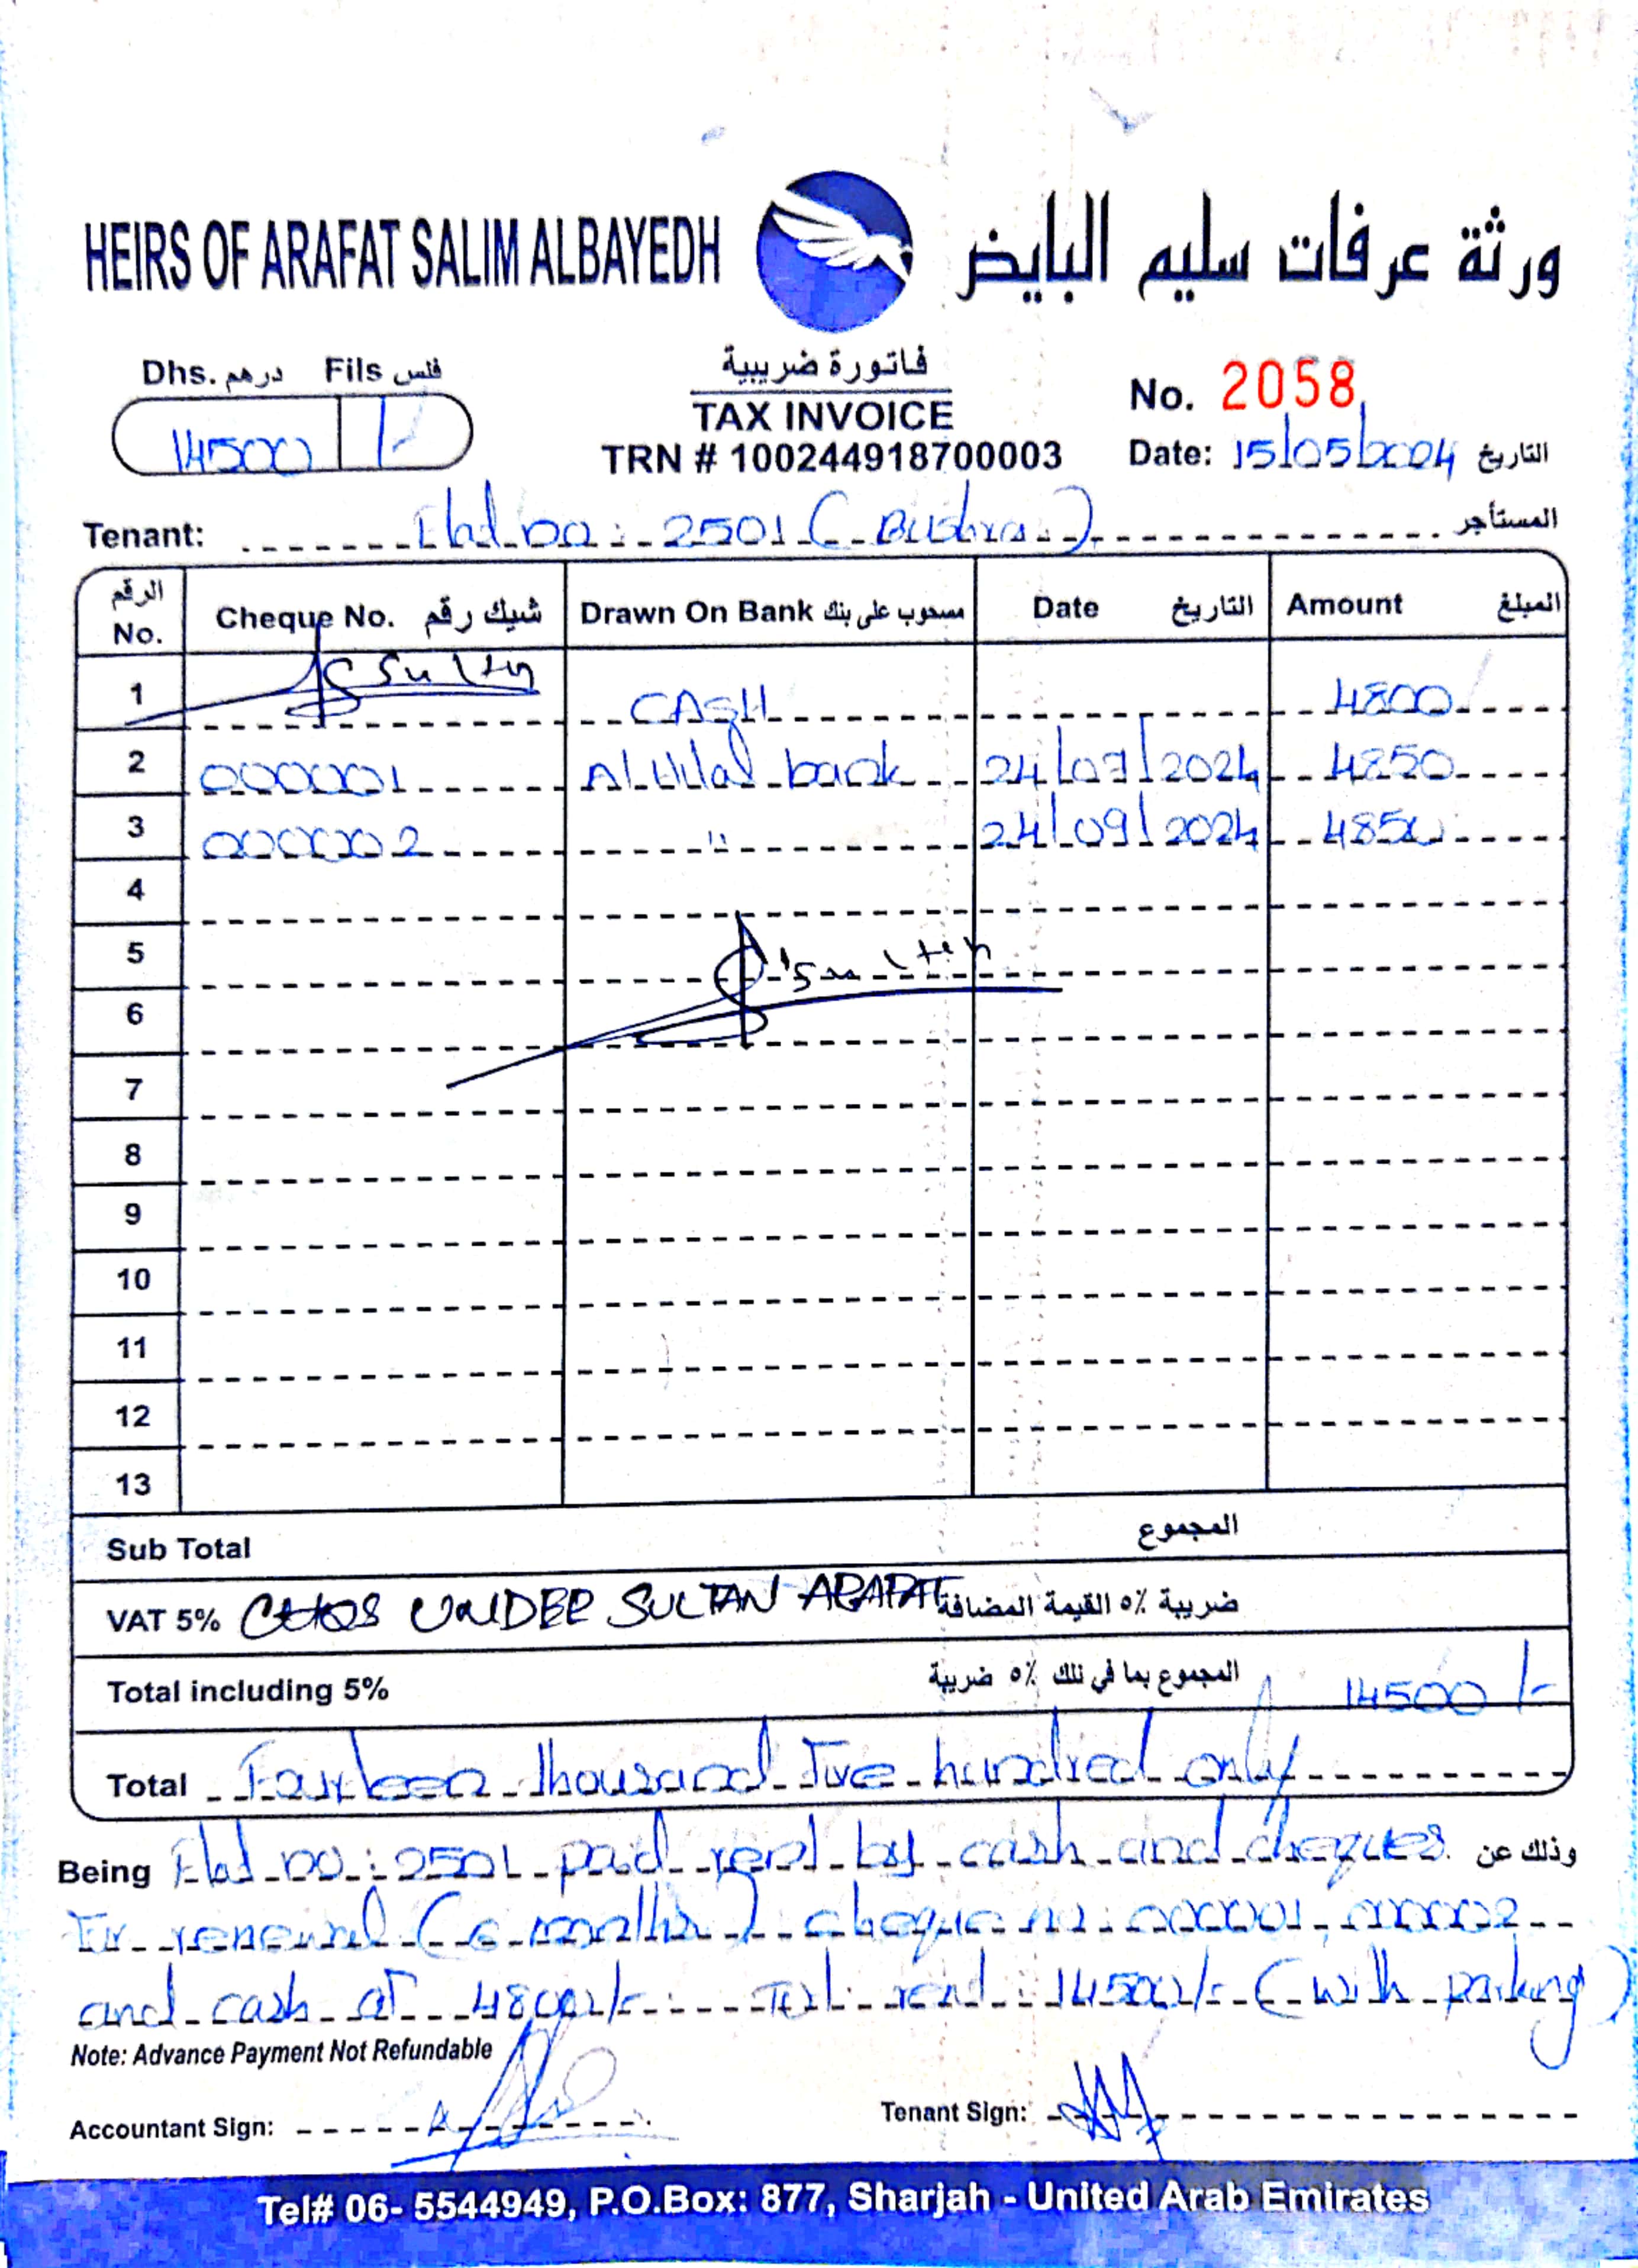 HEIRS OF ARAFAT SALIM ALBAYEDH ورثة عرفات سليم البايض
Dhs. درهم Fils فلس
14500 /-
فاتورة ضريبية
TAX INVOICE
TRN # 100244918700003
No. 2058
Date: 15/05/2024 التاريخ
Tenant: Flat no: 2501 (Bushra) المستأجر
الرقم No. Cheque No. شيك رقم Drawn On Bank مسحوب على بنك Date التاريخ Amount المبلغ
1 Sultan CASH 4800
2 000001 Al Hilal bank 24/07/2024 4850
3 000002 " 24/09/2024 4850
4
5
6
7
8
9
10
11
12
13
Sub Total المجموع
VAT 5% CHQS UNDER SULTAN ARAFAT ضريبة ٥٪ القيمة المضافة
Total including 5% المجموع بما في ذلك ٥٪ ضريبة 14500/-
Total Fourteen thousand Five hundred only
Being Flat no: 2501 paid rent by cash and cheques. وذلك عن
For renewal (6 months). cheque no: 000001, 000002
and cash of 4800/- Tot: rent: 14500/- (with parking)
Note: Advance Payment Not Refundable
Accountant Sign: Tenant Sign:
Tel# 06- 5544949, P.O.Box: 877, Sharjah - United Arab Emirates